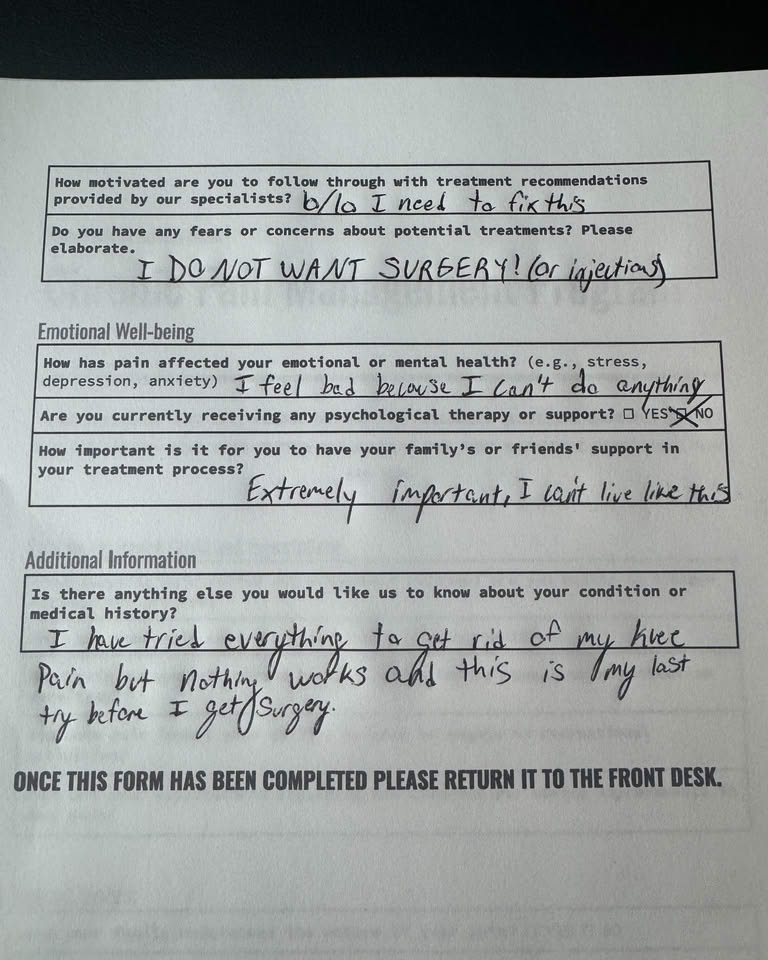 How motivated are you to follow through with treatment recommendations
provided by our specialists? 6/10 I need to fix this
Do you have any fears or concerns about potential treatments? Please
elaborate.
I DO NOT WANT SURGERY! (or injections)
Emotional Well-being
How has pain affected your emotional or mental health? (e.g., stress,
depression, anxiety) I feel bad because I can't do anything
Are you currently receiving any psychological therapy or support? ☐ YES ☒ NO
How important is it for you to have your family's or friends' support in
your treatment process?
Extremely important, I can't live like this
Additional Information
Is there anything else you would like us to know about your condition or
medical history?
I have tried everything to get rid of my knee
Pain but nothing works and this is my last
try before I get Surgery.
ONCE THIS FORM HAS BEEN COMPLETED PLEASE RETURN IT TO THE FRONT DESK.